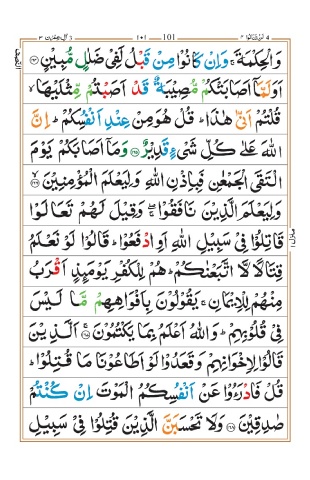 وَالْحِكْمَةَ ۚ وَاِنْ كَانُوْا مِنْ قَبْلُ لَفِىْ ضَلٰلٍ مُّبِيْنٍ ﴿۱۶۴﴾
اَوَلَمَّاۤ اَصَابَتْكُمْ مُّصِيْبَةٌ قَدْ اَصَبْتُمْ مِّثْلَيْهَا ۙ
قُلْتُمْ اَنّٰى هٰذَا ؕ قُلْ هُوَ مِنْ عِنْدِ اَنْفُسِكُمْ ؕ اِنَّ
اللّٰهَ عَلٰى كُلِّ شَىْءٍ قَدِيْرٌ ﴿۱۶۵﴾ وَمَاۤ اَصَابَكُمْ يَوْمَ
الْتَقَى الْجَمْعٰنِ فَبِاِذْنِ اللّٰهِ وَلِيَعْلَمَ الْمُؤْمِنِيْنَ ۙ﴿۱۶۶﴾
وَلِيَعْلَمَ الَّذِيْنَ نَافَقُوْا ۖۚ وَقِيْلَ لَهُمْ تَعَالَوْا
قَاتِلُوْا فِىْ سَبِيْلِ اللّٰهِ اَوِ ادْفَعُوْا ؕ قَالُوْا لَوْ نَعْلَمُ
قِتَالًا لَّا اتَّبَعْنٰكُمْ ؕ هُمْ لِلْكُفْرِ يَوْمَئِذٍ اَقْرَبُ
مِنْهُمْ لِلْاِيْمَانِ ۚ يَقُوْلُوْنَ بِاَفْوَاهِهِمْ مَّا لَيْسَ
فِىْ قُلُوْبِهِمْ ؕ وَاللّٰهُ اَعْلَمُ بِمَا يَكْتُمُوْنَ ۚ﴿۱۶۷﴾ اَلَّذِيْنَ
قَالُوْا لِاِخْوَانِهِمْ وَقَعَدُوْا لَوْ اَطَاعُوْنَا مَا قُتِلُوْا ؕ
قُلْ فَادْرَءُوْا عَنْ اَنْفُسِكُمُ الْمَوْتَ اِنْ كُنْتُمْ
صٰدِقِيْنَ ﴿۱۶۸﴾ وَلَا تَحْسَبَنَّ الَّذِيْنَ قُتِلُوْا فِىْ سَبِيْلِ